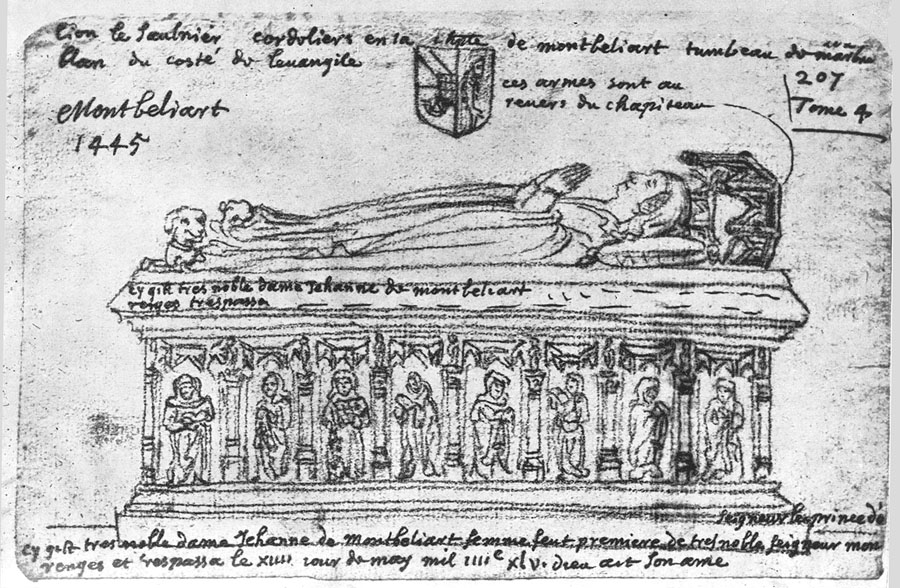 lion le Saulnier cordoliers en la chple de montbeliart tumbeau de marbre
blan du costé de levangile
ces armes sont au
revers du chapiteau
207
Tome 4
Montbeliart
1445
cy gist tres noble dame Jehanne de montbeliart
renges trespassa
Seigneur le prince d'o
cy gist tres noble dame Jehanne de montbeliart femme feut premiere de tres noble seigneur mon
renges et trespassa le XIIII iour de may mil IIIIe XLV. dieu ait son ame